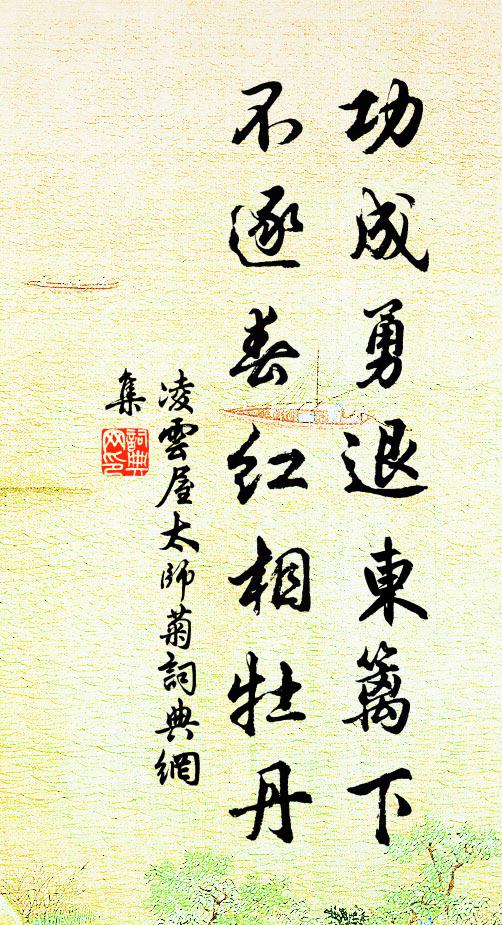 功成勇退東籬下
不逐春红相牡丹
凌雲屋太师菊詞典網
集
詞典
网印